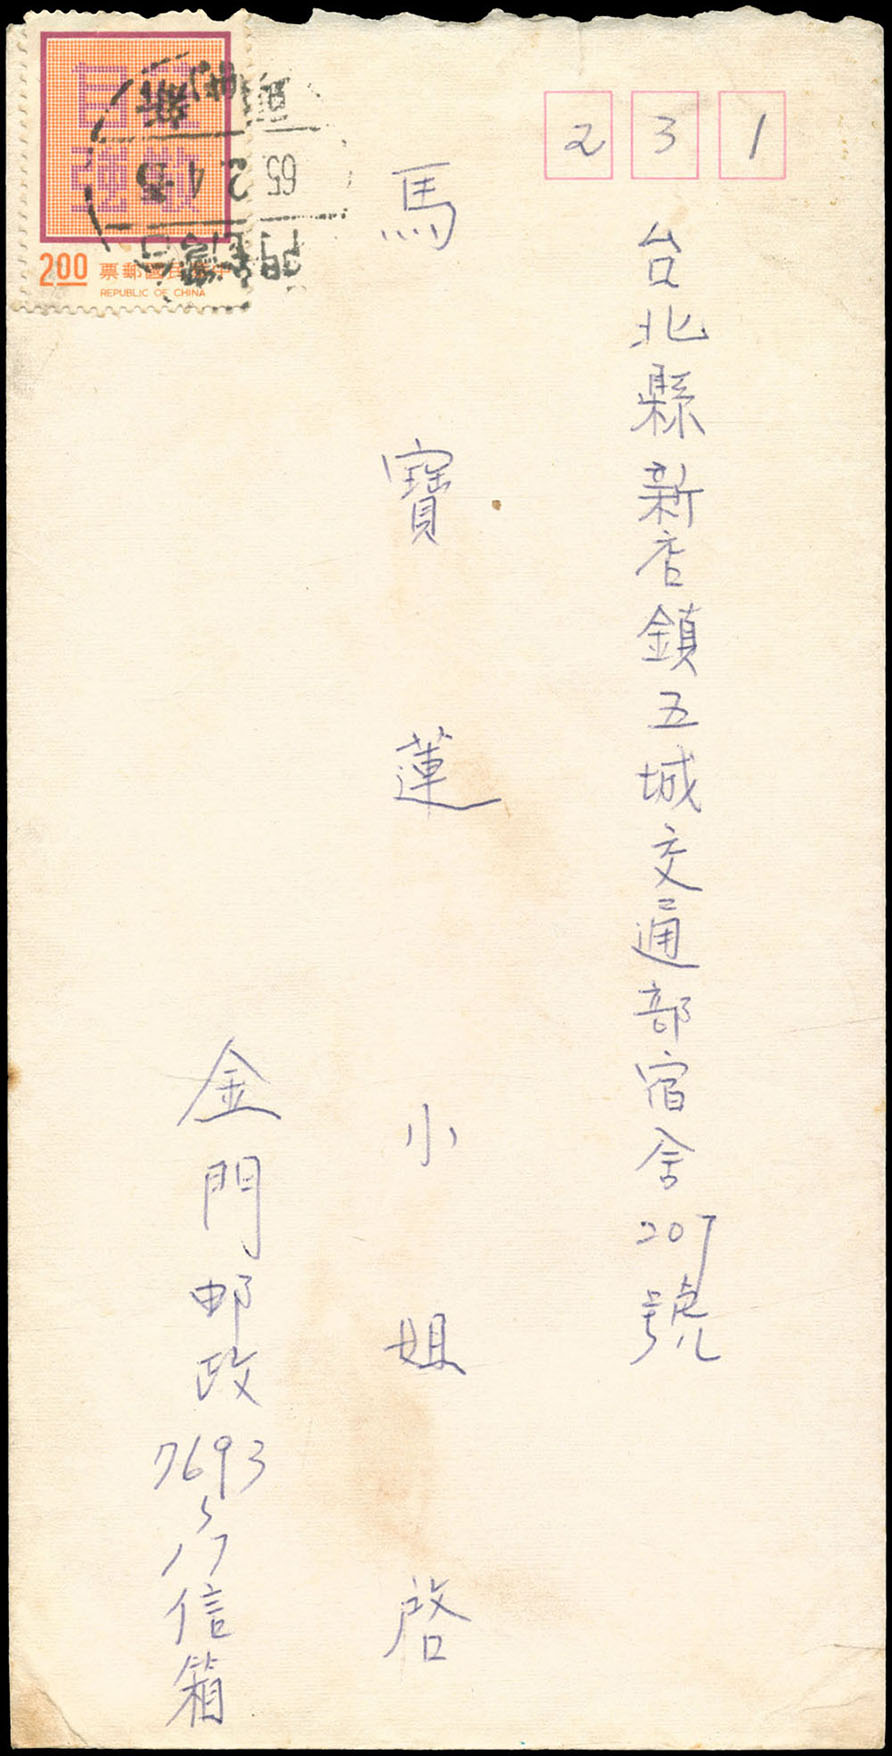 231
台北縣新店鎮五城交通部宿舍207號
馬寶蓮小姐 啓
金門邮政7693
17信箱
2.00 票郵國民華中
REPUBLIC OF CHINA
65.2.4